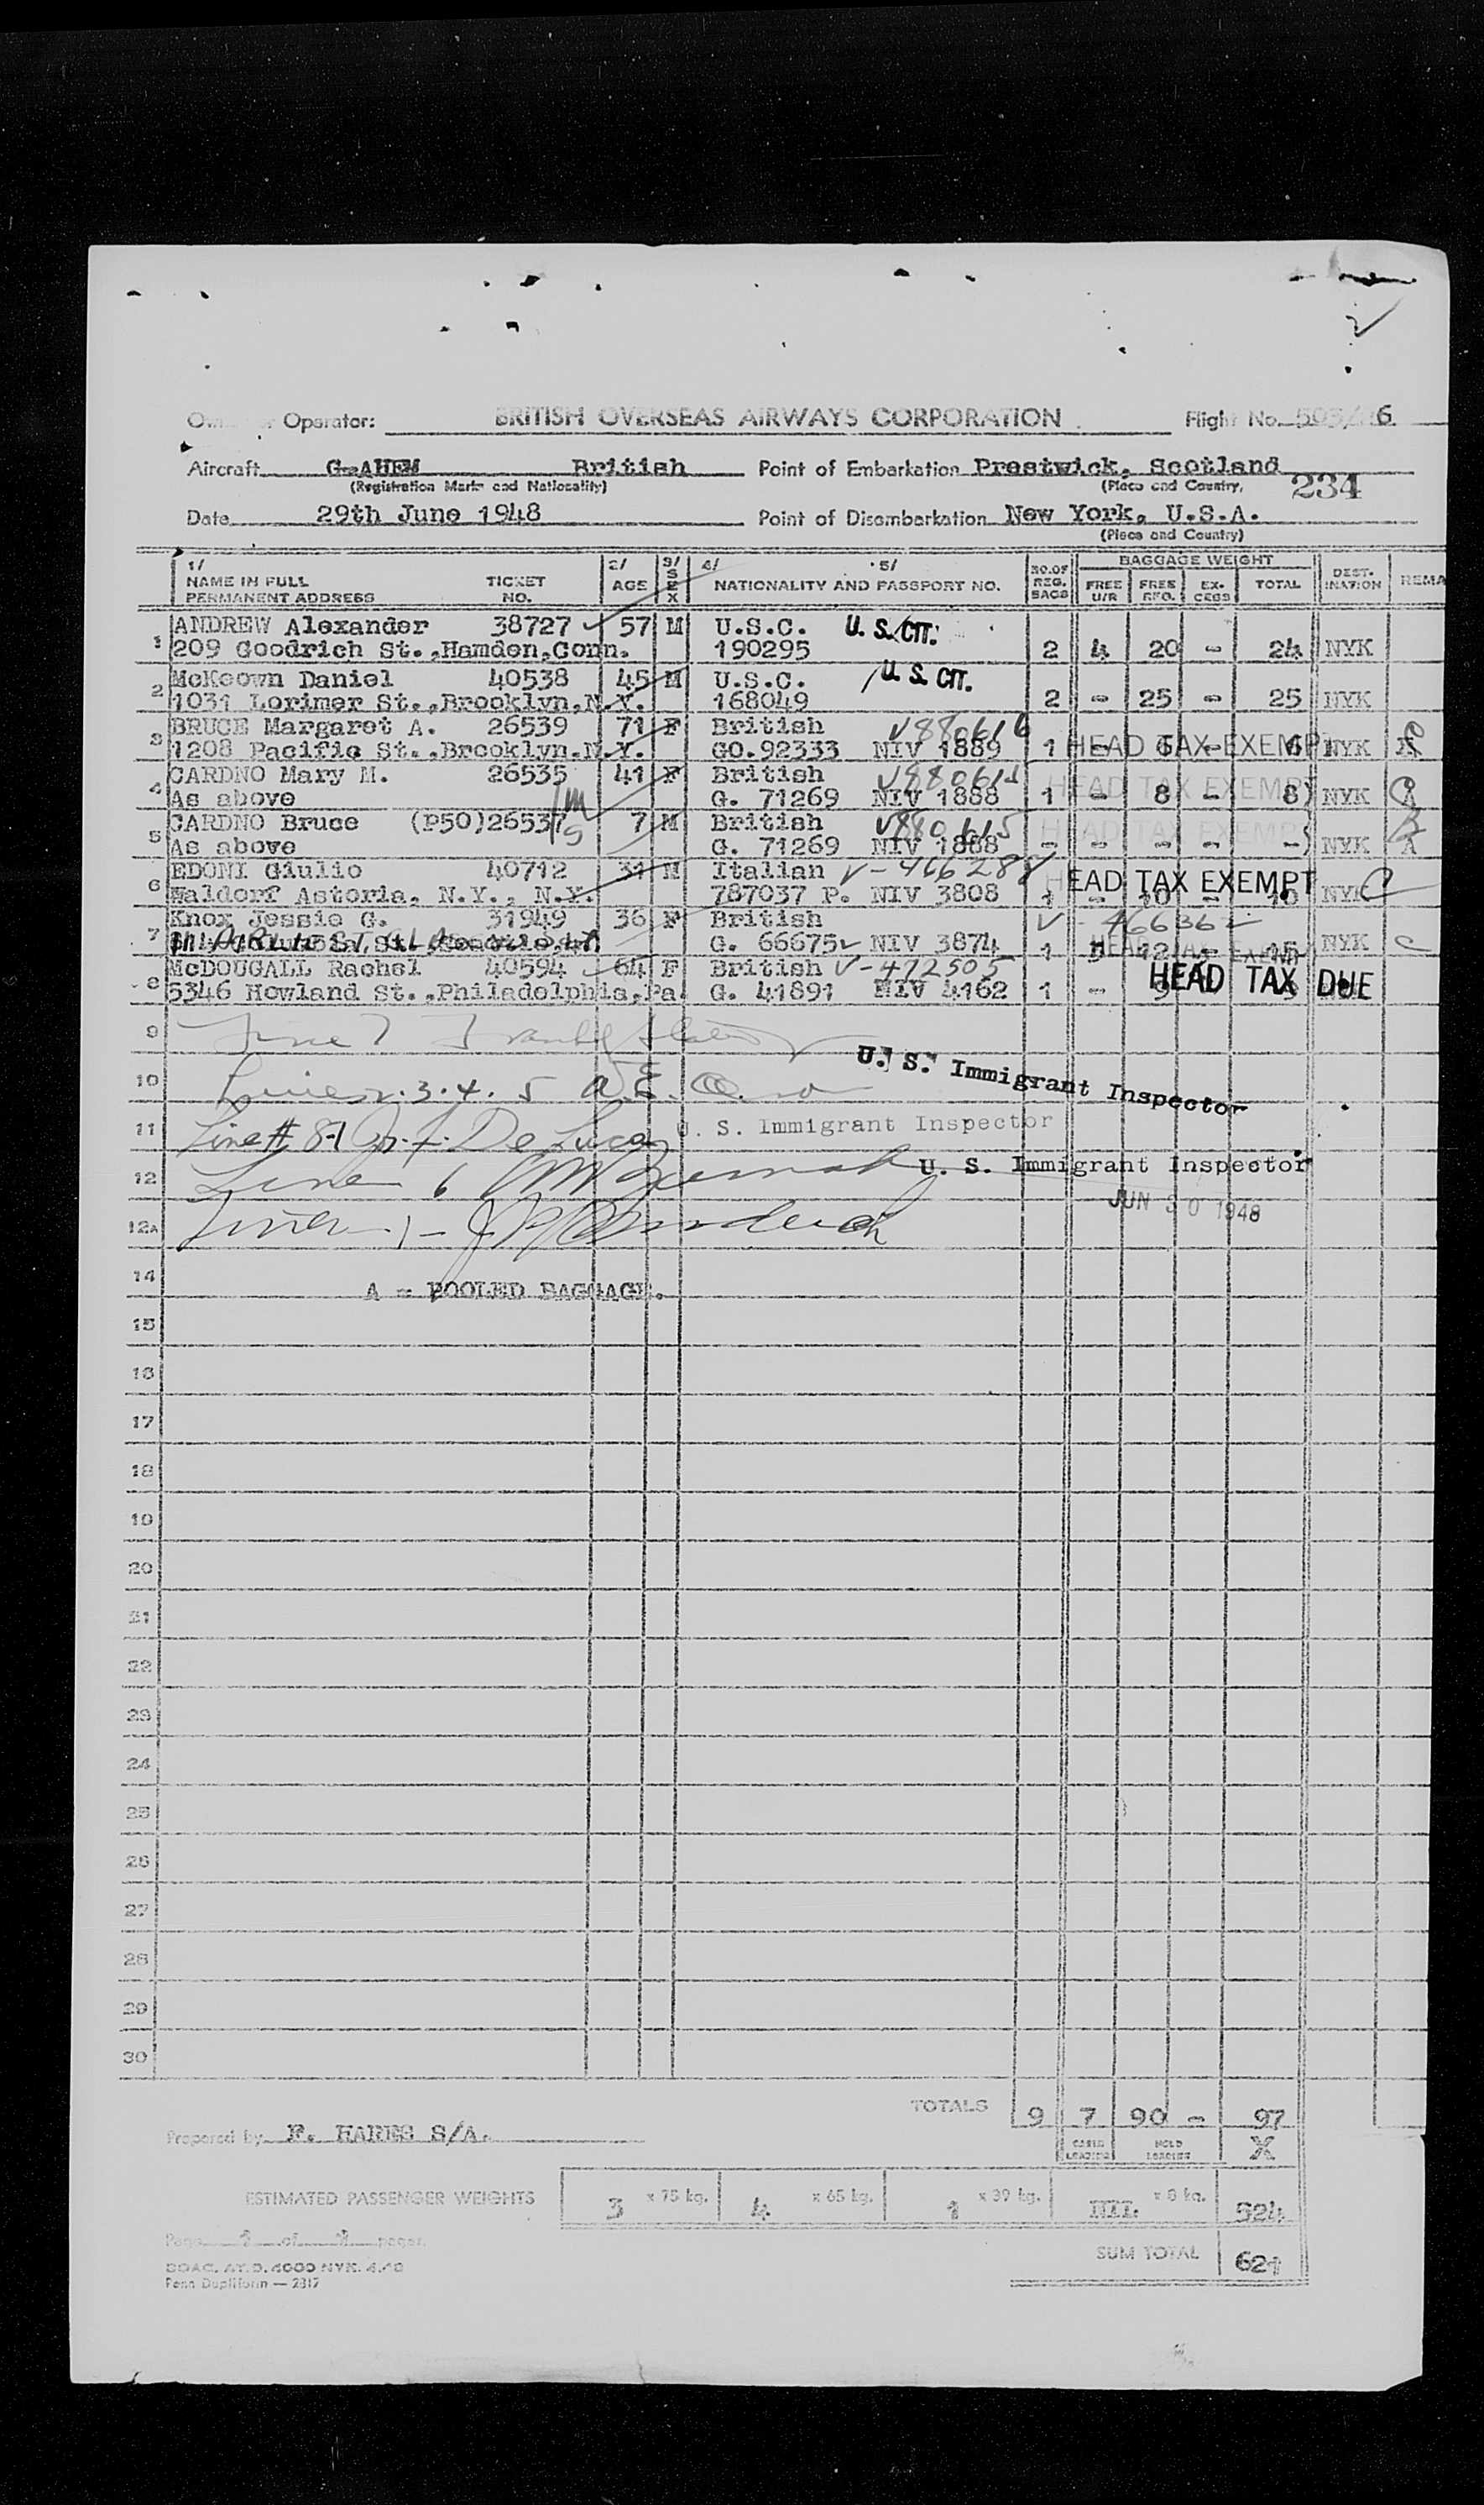 Operator: BRITISH OVERSEAS AIRWAYS CORPORATION Flight No. 6
Aircraft G-AHEM British Point of Embarkation Prestwick, Scotland
(Registration Marks and Nationality) (Place and Country)
234
Date 29th June 1948 Point of Disembarkation New York, U.S.A.
(Place and Country)
1/ 2/ 3/ 4/ 5/ NO.OF BAGGAGE WEIGHT
NAME IN FULL TICKET AGE SEX NATIONALITY AND PASSPORT NO. REG. FREE FREE EX- TOTAL DEST- REMA
PERMANENT ADDRESS NO. BAGS U/R CESS INATION
1 ANDREW Alexander 38727 57 M U.S.C. U. S. CIT.
209 Goodrich St.,Hamden,Conn. 190295 2 4 20 - 24 NYK
2 McKeown Daniel 40538 45 M U.S.C. U. S. CIT.
1031 Lorimer St.,Brooklyn,N.Y. 168049 2 - 25 - 25 NYK
3 BRUCE Margaret A. 26539 71 F British V880616
1208 Pacific St.,Brooklyn,N.Y. GO.92333 NIV 1889 1 - 6 - 6 NYK
HEAD TAX EXEMPT
4 CARDNO Mary M. 26535 41 F British
As above G. 71269 NIV 1888 1 - 8 - 8) NYK A
HEAD TAX EXEMPT
5 CARDNO Bruce (P50)26537 7 M British V880615
As above G. 71269 NIV 1888 - - - - -) NYK A
HEAD TAX EXEMPT
6 EDONI Giulio 40712 31 M Italian V-466288
Waldorf Astoria, N.Y., N.Y. 787037 P. NIV 3808 1 - 10 - 10 NYK C
HEAD TAX EXEMPT
7 Knox Jessie G. 31949 36 F British V-466362
G. 66675 NIV 3874 1 3 12 - 15 NYK C
HEAD TAX EXEMPT
8 McDOUGALL Rachel 40594 64 F British V-472505
5346 Howland St.,Philadelphia,Pa. G. 41891 NIV 4162 1 - 9
HEAD TAX DUE
9 Line 7
10 Lines 2.3.4. 5 U. S. Immigrant Inspector
11 Line # 8-1 De Luca U. S. Immigrant Inspector
12 Line 6 U. S. Immigrant Inspector
JUN 30 1948
12A
14 A - POOLED BAGGAGE.
15
16
17
18
19
20
21
22
23
24
25
26
27
28
29
30
TOTALS 9 7 90 - 97
Prepared by F. S/A.
CABIN LOADING HOLD LOADING X
ESTIMATED PASSENGER WEIGHTS 3 x 75 kg. 4 x 65 kg. 1 x 39 kg. NIL x 8 kg. 524
Page of pages
SUM TOTAL 621
BOAC. AT.D. 4000 NYK. 4.48
Penn Dupliform — 2317